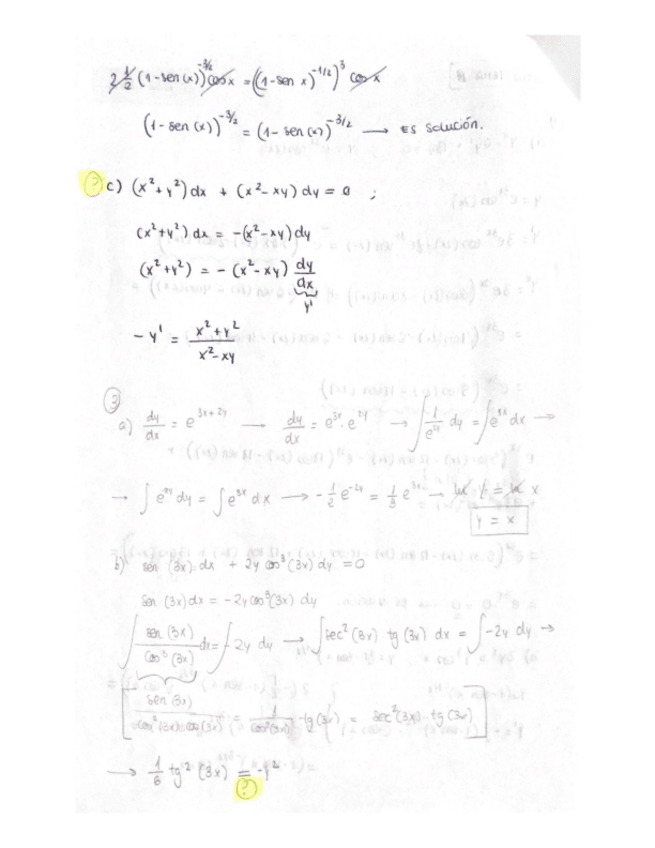 2 1/2 (1-sen(x))^-3/2 cos x = ((1-sen x)^-1/2)^3 cos x
(1-sen(x))^-3/2 = (1-sen(x))^-3/2 → es solución.
? c) (x²+y²)dx + (x²-xy)dy = 0 ;
(x²+y²)dx = -(x²-xy)dy
(x²+y²) = -(x²-xy) dy/dx
y'
-y' = x²+y² / x²-xy
3
a) dy/dx = e^3x+2y → dy/dx = e^3x · e^2y → ∫ 1/e^2y dy = ∫e^3x dx →
→ ∫ e^-2y dy = ∫e^3x dx → -1/2 e^-2y = 1/3 e^3x → x
y = x
b) sen (3x) dx + 2y cos³(3x) dy = 0
sen (3x) dx = -2y cos³(3x) dy
∫ sen (3x) / cos³(3x) dx = ∫-2y dy → ∫sec²(3x) · tg(3x) dx = ∫-2y dy →
[ sen(3x) / cos²(3x) cos(3x) = 1 / cos²(3x) · tg(3x) = sec²(3x) · tg(3x) ]
→ 1/6 tg²(3x) = -y²
?